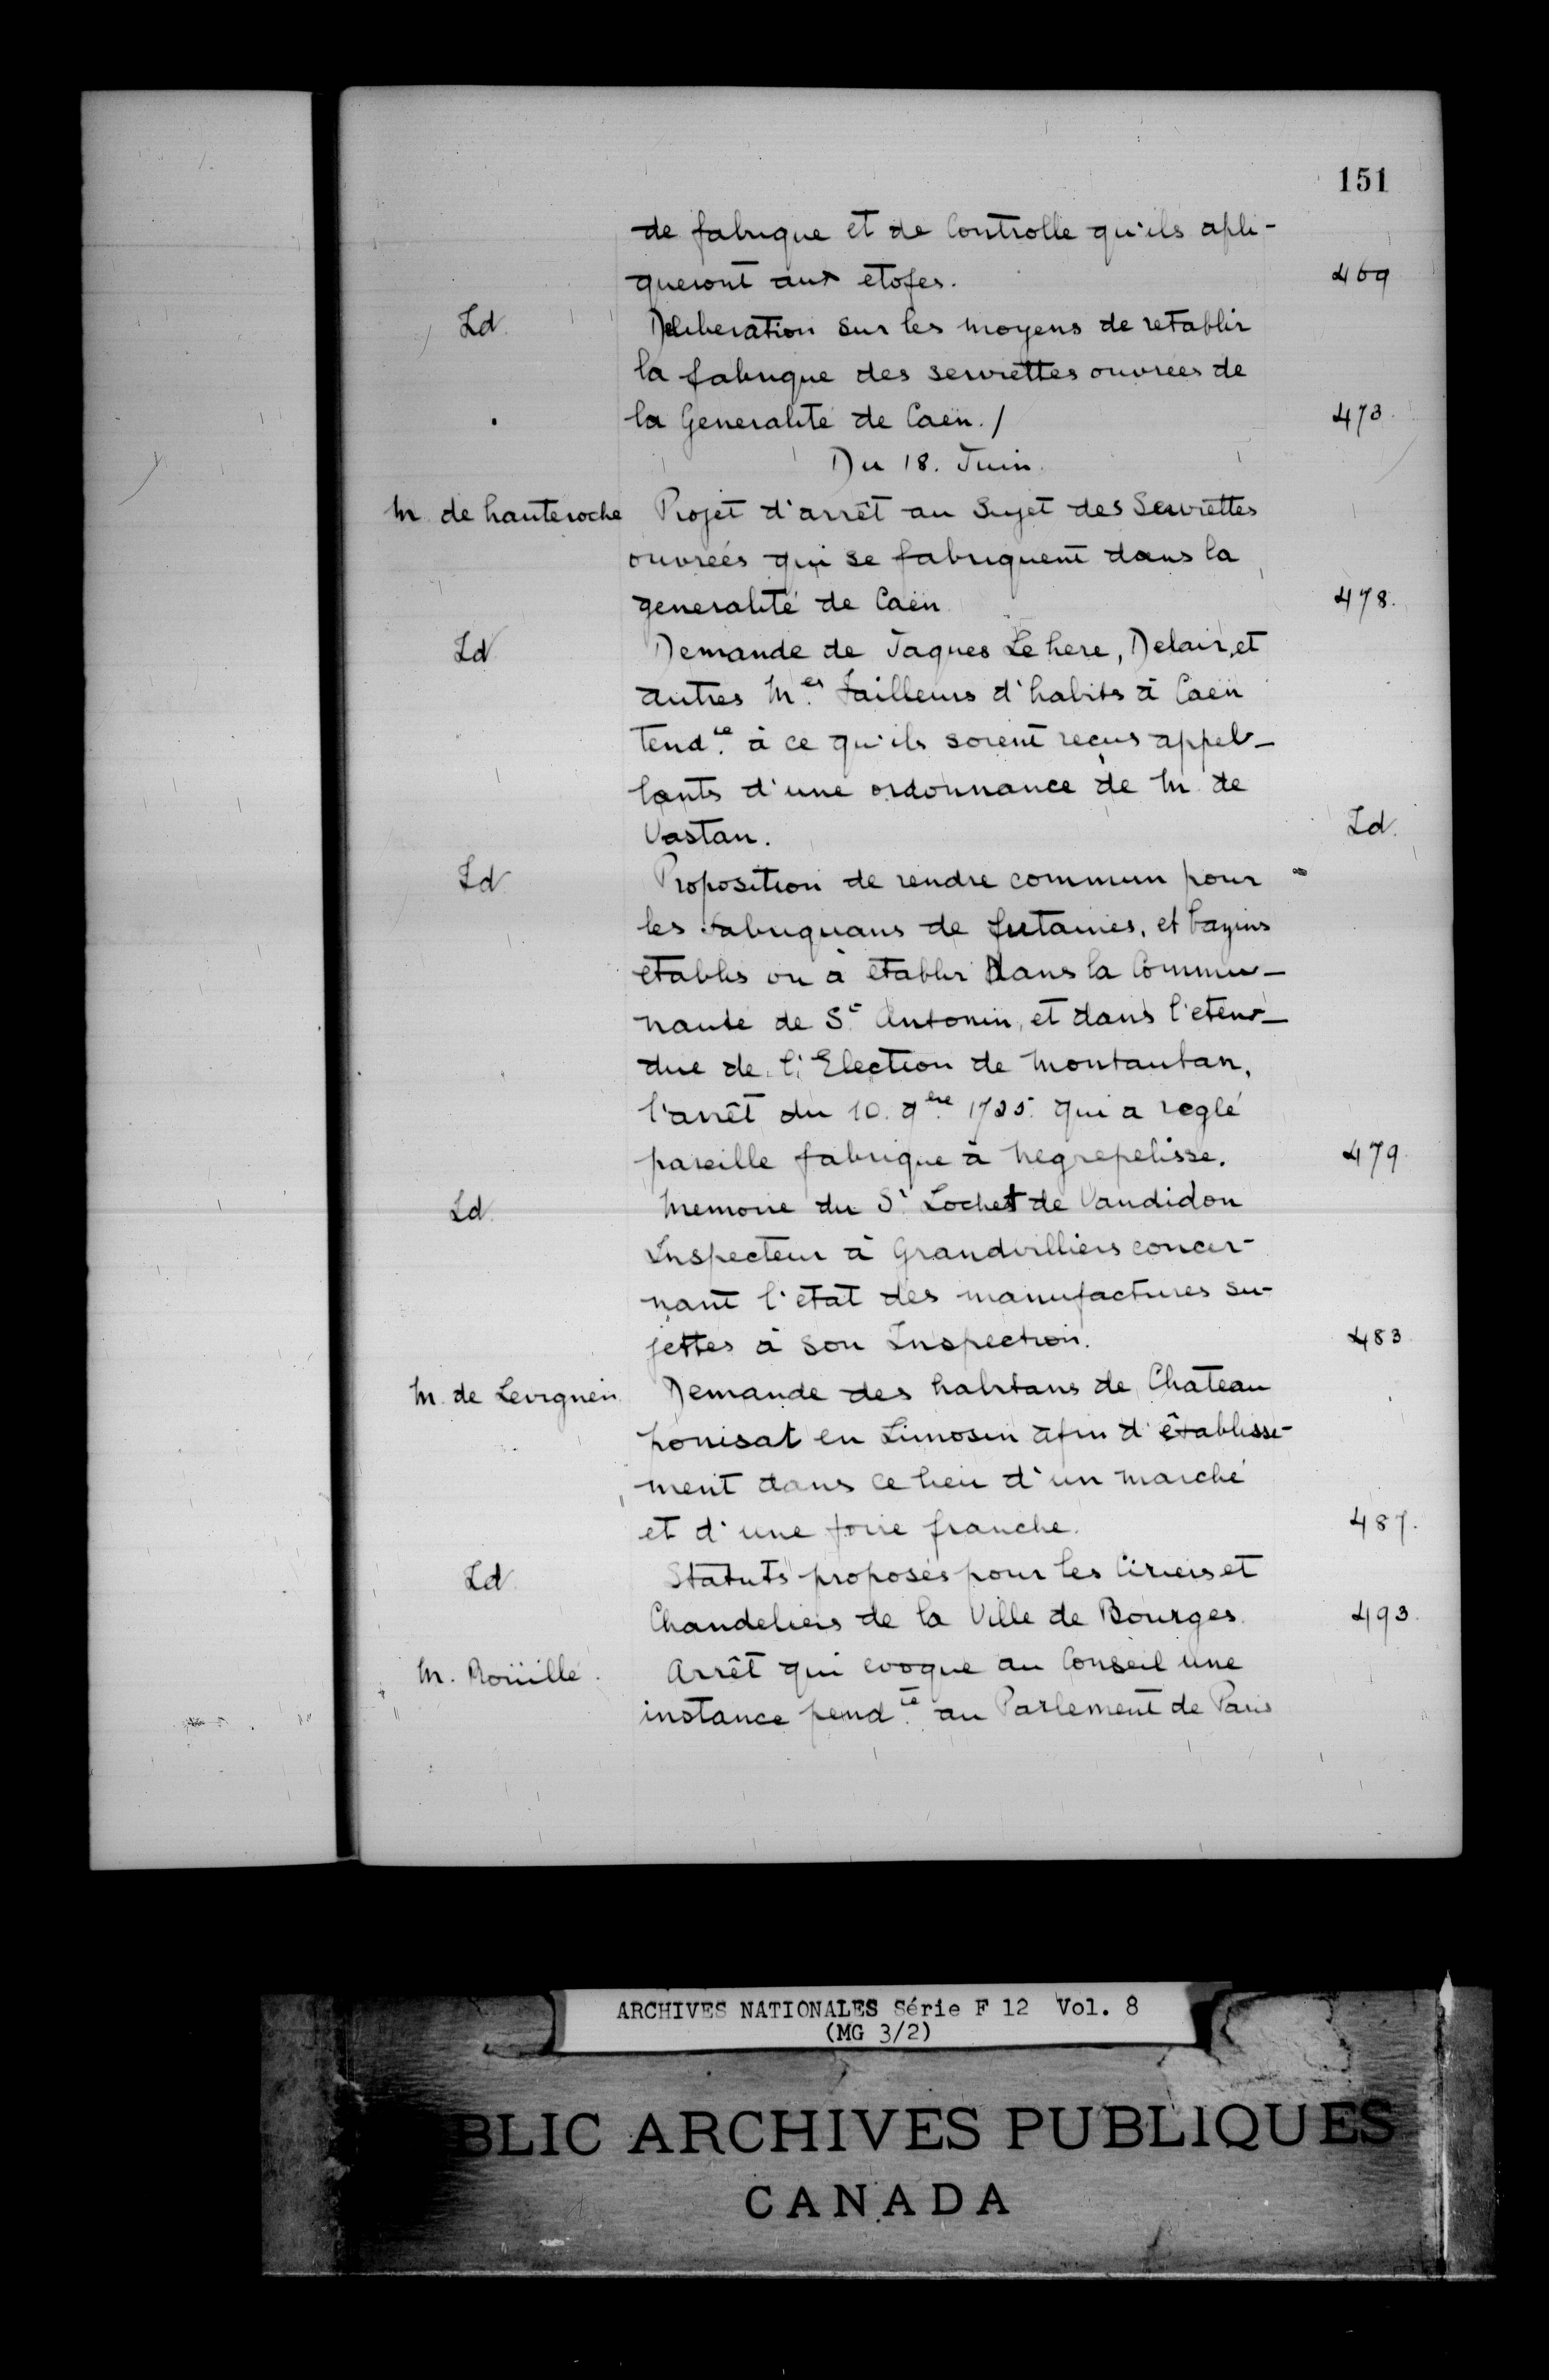 151
de fabrique et de Controlle qu'ils apli-
queront aux etofes. 469
Id. Deliberation sur les moyens de retablir
la fabrique des serviettes ouvrées de
la Generalité de Caen. / 473.
Du 18. Juin.
M. de hauteroche Projet d'arrêt au Sujet des Serviettes
ouvreés qui se fabriquent dans la
generalité de Caën 478.
Id. Demande de Jaques Le here, Delair, et
autres M.es Tailleurs d'habits à Caën
tend.te à ce qu'ils soient reçus appel-
lants d'une ordonnance de M. de
Vastan. Id.
Id. Proposition de rendre commun pour
les fabriquans de futaines, et bazins
etablis ou à etablir dans la Commu-
nauté de S.t Antonin, et dans l'eten-
due de l'Election de Montauban,
l'arrêt du 10. 9.bre 1735. qui a reglé
pareille fabrique à Negrepelisse. 479.
Id. Memoire du S.r Lochet de Vandidon
Inspecteur à Grandvilliers concer-
nant l'etat des manufactures su-
jettes à son Inspection. 483
M. de Levignen Demande des habitans de Chateau
ponisat en Limosin afin d'établisse-
ment dans ce lieu d'un marché
et d'une foire franche. 487.
Id. Statuts proposés pour les Ciriers et
Chandeliers de la Ville de Bourges. 493.
M. Roüillé. Arrêt qui evoque au Conseil une
instance pend.te au Parlement de Paris
ARCHIVES NATIONALES Série F 12 Vol. 8
(MG 3/2)
BLIC ARCHIVES PUBLIQUES
CANADA